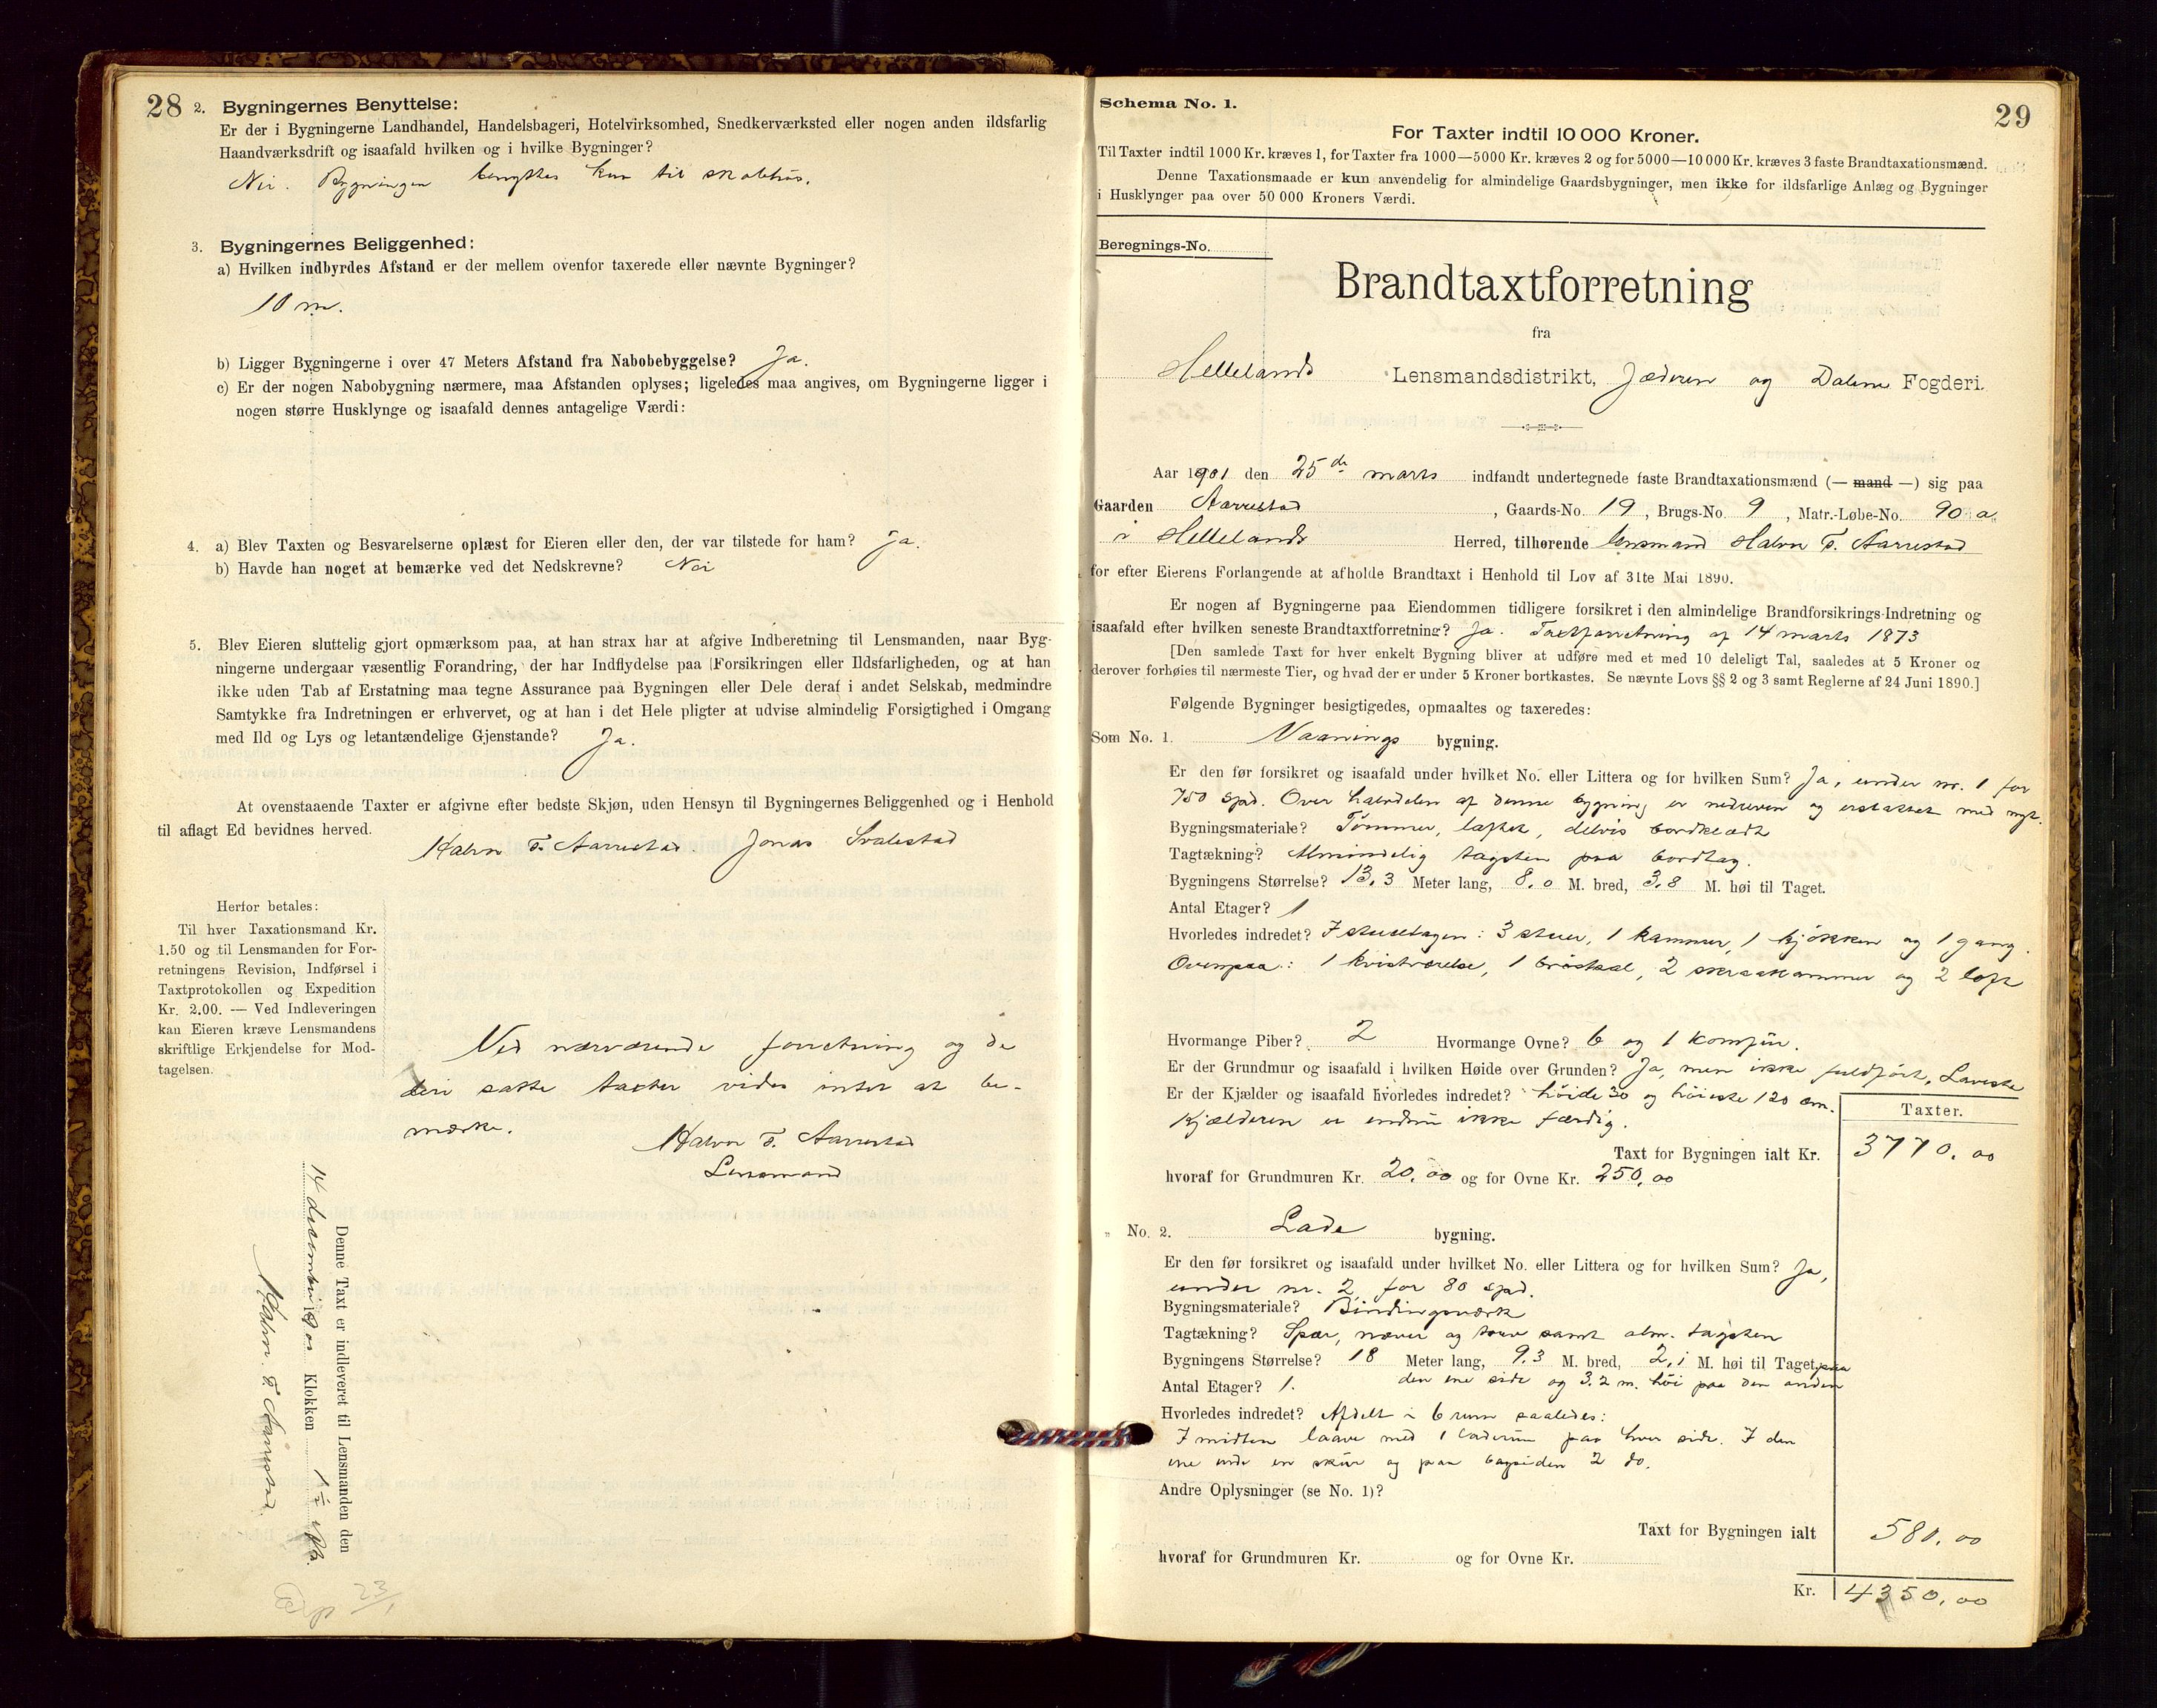 28
2. Bygningernes Benyttelse:
Er der i Bygningerne Landhandel, Handelsbageri, Hotelvirksomhed, Snedkerværksted eller nogen anden ildsfarlig
Haandværksdrift og isaafald hvilken og i hvilke Bygninger?
Nei. Bygningen benyttes kun til skolehus.
3. Bygningernes Beliggenhed:
a) Hvilken indbyrdes Afstand er der mellem ovenfor taxerede eller nævnte Bygninger?
10 m.
b) Ligger Bygningerne i over 47 Meters Afstand fra Nabobebyggelse? Ja.
c) Er der nogen Nabobygning nærmere, maa Afstanden oplyses; ligeledes maa angives, om Bygningerne ligger i
nogen større Husklynge og isaafald dennes antagelige Værdi:
4. a) Blev Taxten og Besvarelserne oplæst for Eieren eller den, der var tilstede for ham? Ja.
b) Havde han noget at bemærke ved det Nedskrevne? Nei
5. Blev Eieren sluttelig gjort opmærksom paa, at han strax har at afgive Indberetning til Lensmanden, naar Byg-
ningerne undergaar væsentlig Forandring, der har Indflydelse paa Forsikringen eller Ildsfarligheden, og at han
ikke uden Tab af Erstatning maa tegne Assurance paa Bygningen eller Dele deraf i andet Selskab, medmindre
Samtykke fra Indretningen er erhvervet, og at han i det Hele pligter at udvise almindelig Forsigtighed i Omgang
med Ild og Lys og letantændelige Gjenstande? Ja.
At ovenstaaende Taxter er afgivne efter bedste Skjøn, uden Hensyn til Bygningernes Beliggenhed og i Henhold
til aflagt Ed bevidnes herved.
Halvor T. Aarrestad. Jonas Svalestad
Herfor betales:
Til hver Taxationsmand Kr.
1.50 og til Lensmanden for For-
retningens Revision, Indførsel i
Taxtprotokollen og Expedition
Kr. 2.00. — Ved Indleveringen
kan Eieren kræve Lensmandens
skriftlige Erkjendelse for Mod-
tagelsen.
Ved nærværende forretning og de
deri satte taxter vides intet at be-
mærke.
Halvor T. Aarrestad
Lensmand
Denne Taxt er indleveret til Lensmanden den
14 december 1901 Klokken
Halvor T. Aarrestad
Schema No. 1.
29
For Taxter indtil 10 000 Kroner.
Til Taxter indtil 1000 Kr. kræves 1, for Taxter fra 1000—5000 Kr. kræves 2 og for 5000—10 000 Kr. kræves 3 faste Brandtaxationsmænd.
Denne Taxationsmaade er kun anvendelig for almindelige Gaardsbygninger, men ikke for ildsfarlige Anlæg og Bygninger
i Husklynger paa over 50 000 Kroners Værdi.
Beregnings-No.
Brandtaxtforretning
fra
Hellelands Lensmandsdistrikt, Jæderen og Dalene Fogderi.
Aar 1901 den 25de marts indfandt undertegnede faste Brandtaxationsmænd (— mand —) sig paa
Gaarden Aarrestad, Gaards-No. 19, Brugs-No. 9, Matr.-Løbe-No. 90 a
i Hellelands Herred, tilhørende lensmand Halvor T. Aarrestad
for efter Eierens Forlangende at afholde Brandtaxt i Henhold til Lov af 31te Mai 1890.
Er nogen af Bygningerne paa Eiendommen tidligere forsikret i den almindelige Brandforsikrings-Indretning og
isaafald efter hvilken seneste Brandtaxtforretning? Ja. Taxtforretning af 14 marts 1873
[Den samlede Taxt for hver enkelt Bygning bliver at udføre med et med 10 deleligt Tal, saaledes at 5 Kroner og
derover forhøies til nærmeste Tier, og hvad der er under 5 Kroner bortkastes. Se nævnte Lovs §§ 2 og 3 samt Reglerne af 24 Juni 1890.]
Følgende Bygninger besigtigedes, opmaaltes og taxeredes:
Som No. 1. Vaanings bygning.
Er den før forsikret og isaafald under hvilket No. eller Littera og for hvilken Sum? Ja, under nr. 1 for
750 spd. Over halvdelen af denne bygning er nedreven og erstattet med nyt.
Bygningsmateriale? Tømmer, laftet, delvis bordklædt
Tagtækning? Almindelig tagsten paa bordtag.
Bygningens Størrelse? 13,3 Meter lang, 8,0 M. bred, 3,8 M. høi til Taget.
Antal Etager? 1
Hvorledes indredet? I stueetagen: 3 stuer, 1 kammer, 1 kjøkken og 1 gang.
Ovenpaa: 1 kvistværelse, 1 skraakammer og 2 loft
Hvormange Piber? 2 Hvormange Ovne? 6 og 1 komfur.
Er der Grundmur og isaafald i hvilken Høide over Grunden? Ja, men ikke fuldført. Laveste
Er der Kjælder og isaafald hvorledes indredet? høide 30 og høieste 120 cm.
Kjælderen er endnu ikke færdig.
Taxter.
Taxt for Bygningen ialt Kr. 3770.00
hvoraf for Grundmuren Kr. 20,00 og for Ovne Kr. 250,00
" No. 2. Lade bygning.
Er den før forsikret og isaafald under hvilket No. eller Littera og for hvilken Sum? Ja,
under nr. 2, for 80 spd.
Bygningsmateriale? Bindingsværk
Tagtækning? Spær, næver og torv samt alm. tagsten
Bygningens Størrelse? 18 Meter lang, 9,3 M. bred, 2,1 M. høi til Taget paa
den ene side og 3.2 m. høi paa den anden
Antal Etager? 1.
Hvorledes indredet? Afdelt i 6 rum saaledes:
I midten laave med 1 laderum paa hver side. I den
ene ende en skur og paa bagsiden 2 do.
Andre Oplysninger (se No. 1)?
Taxt for Bygningen ialt 580,00
hvoraf for Grundmuren Kr. og for Ovne Kr.
Kr. 4350,00